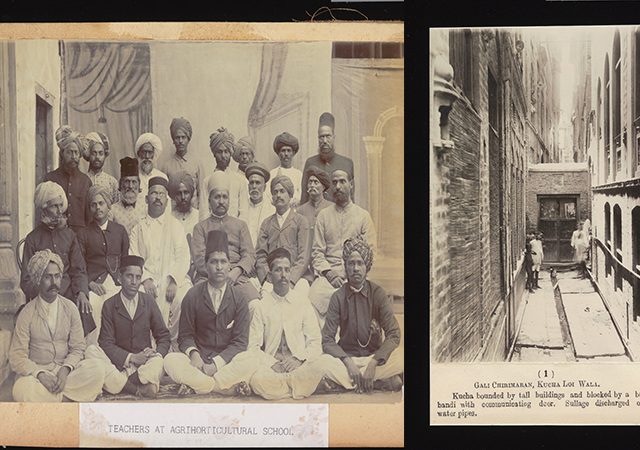 TEACHERS AT AGRIHORTICULTURAL SCHOOL
( 1 )
GALI CHIRIMARAN, KUCHA LOI WALA.
Kucha bounded by tall buildings and blocked by a
bandi with communicating door. Sullage discharged
water pipes.